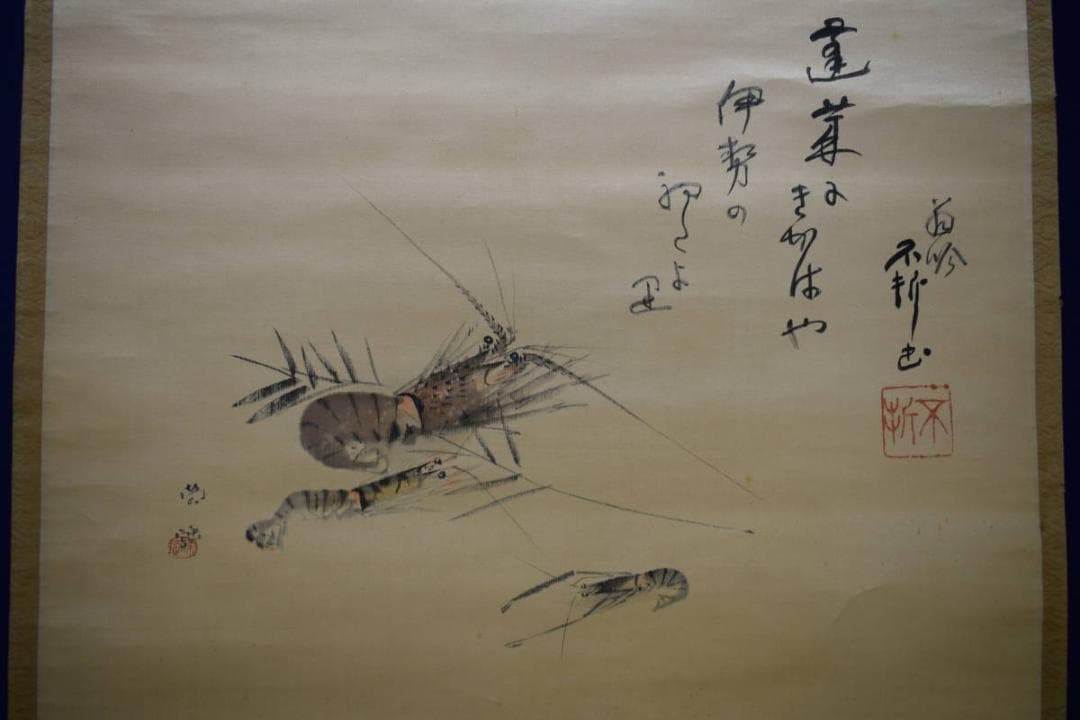 蓬莱に
きかはや
伊勢の
初たよ里
翁吟
不折書
不折